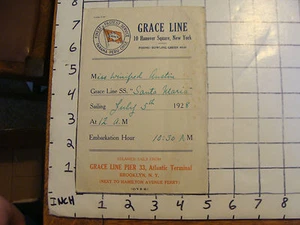 GRACE LINE
10 Hanover Square, New York
Miss Winifred Austin
Grace Line SS. "Santa Maria"
Sailing July 5th 1928
At 12 A M
Embarkation Hour 10:30 A M
GRACE LINE PIER 33, Atlantic Terminal
BROOKLYN, N. Y.
(NEXT TO HAMILTON AVENUE FERRY)
INCH 1 2 3 4 5 6 7 8
1
2
3
4
5